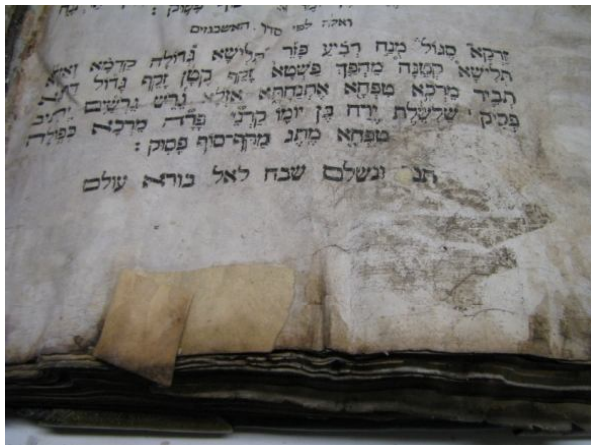 ואלה לפי סדר האשכנזים
זַרְקָא סְגוֹל מֻנַּח רְבִיעַ פָּזֵר תְּלִישָׁא גְּדוֹלָה קַדְמָא וְאַזְלָא
תְּלִישָׁא קְטַנָּה מַהְפַּךְ פַּשְׁטָא זָקֵף קָטָן זָקֵף גָּדוֹל
תְּבִיר מֵרְכָא טִפְּחָא אֶתְנַחְתָּא אַזְלָא גֵּרֵשׁ גֵּרְשַׁיִם יְתִיב
פְּסִיק שַׁלְשֶׁלֶת יֵרֵחַ בֶּן יוֹמוֹ קַרְנֵי פָרָה מֵרְכָא כְפוּלָה
טִפְּחָא מֶתֶג מַקֵּף־סוֹף פָּסוּק :
תם ונשלם שבח לאל בורא עולם